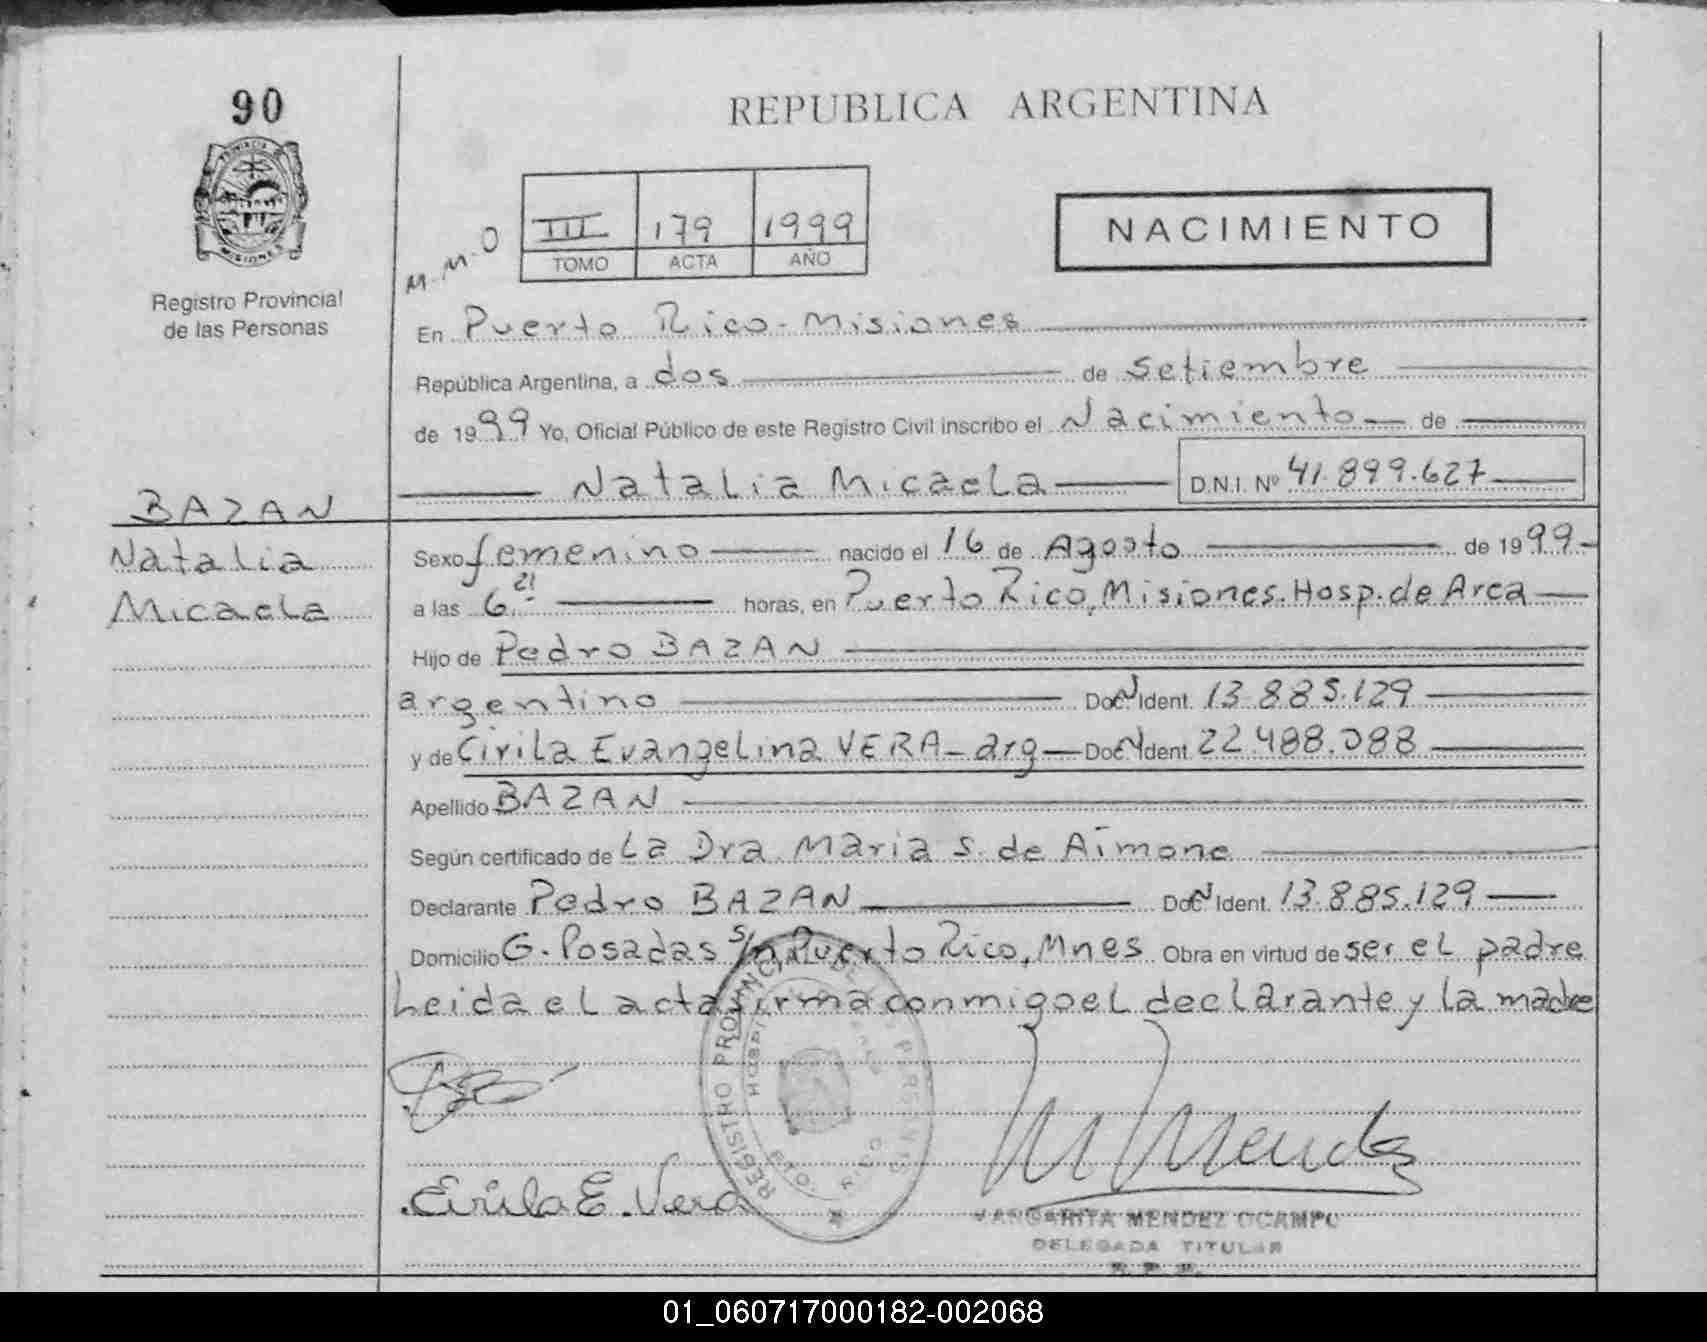 90
PROVINCIA
MISIONES
Registro Provincial
de las Personas
BAZAN
Natalia
Micaela
REPUBLICA ARGENTINA
M.M.O
III 179 1999
TOMO ACTA AÑO
NACIMIENTO
En Puerto Rico-Misiones
República Argentina, a dos de Setiembre
de 1999 Yo, Oficial Público de este Registro Civil inscribo el Nacimiento de
Natalia Micaela D.N.I. Nº 41.899.627
Sexo femenino nacido el 16 de Agosto de 1999
a las 6.21 horas, en Puerto Rico, Misiones. Hosp. de Area
Hijo de Pedro BAZAN
argentino Doc N Ident. 13.885.129
y de Cirila Evangelina VERA - arg Doc N Ident. 22.488.088
Apellido BAZAN
Según certificado de La Dra Maria S. de Aimone
Declarante Pedro BAZAN Doc N Ident. 13.885.129
Domicilio G. Posadas s/n Puerto Rico, Mnes Obra en virtud de ser el padre
Leida el acta firma conmigo el declarante y la madre
REGISTRO PROVINCIAL DE LAS PERSONAS
PTO. RICO
M Mendez
Cirila E. Vera
MARGARITA MENDEZ OCAMPO
DELEGADA TITULAR
R. P. P.
01_060717000182-002068